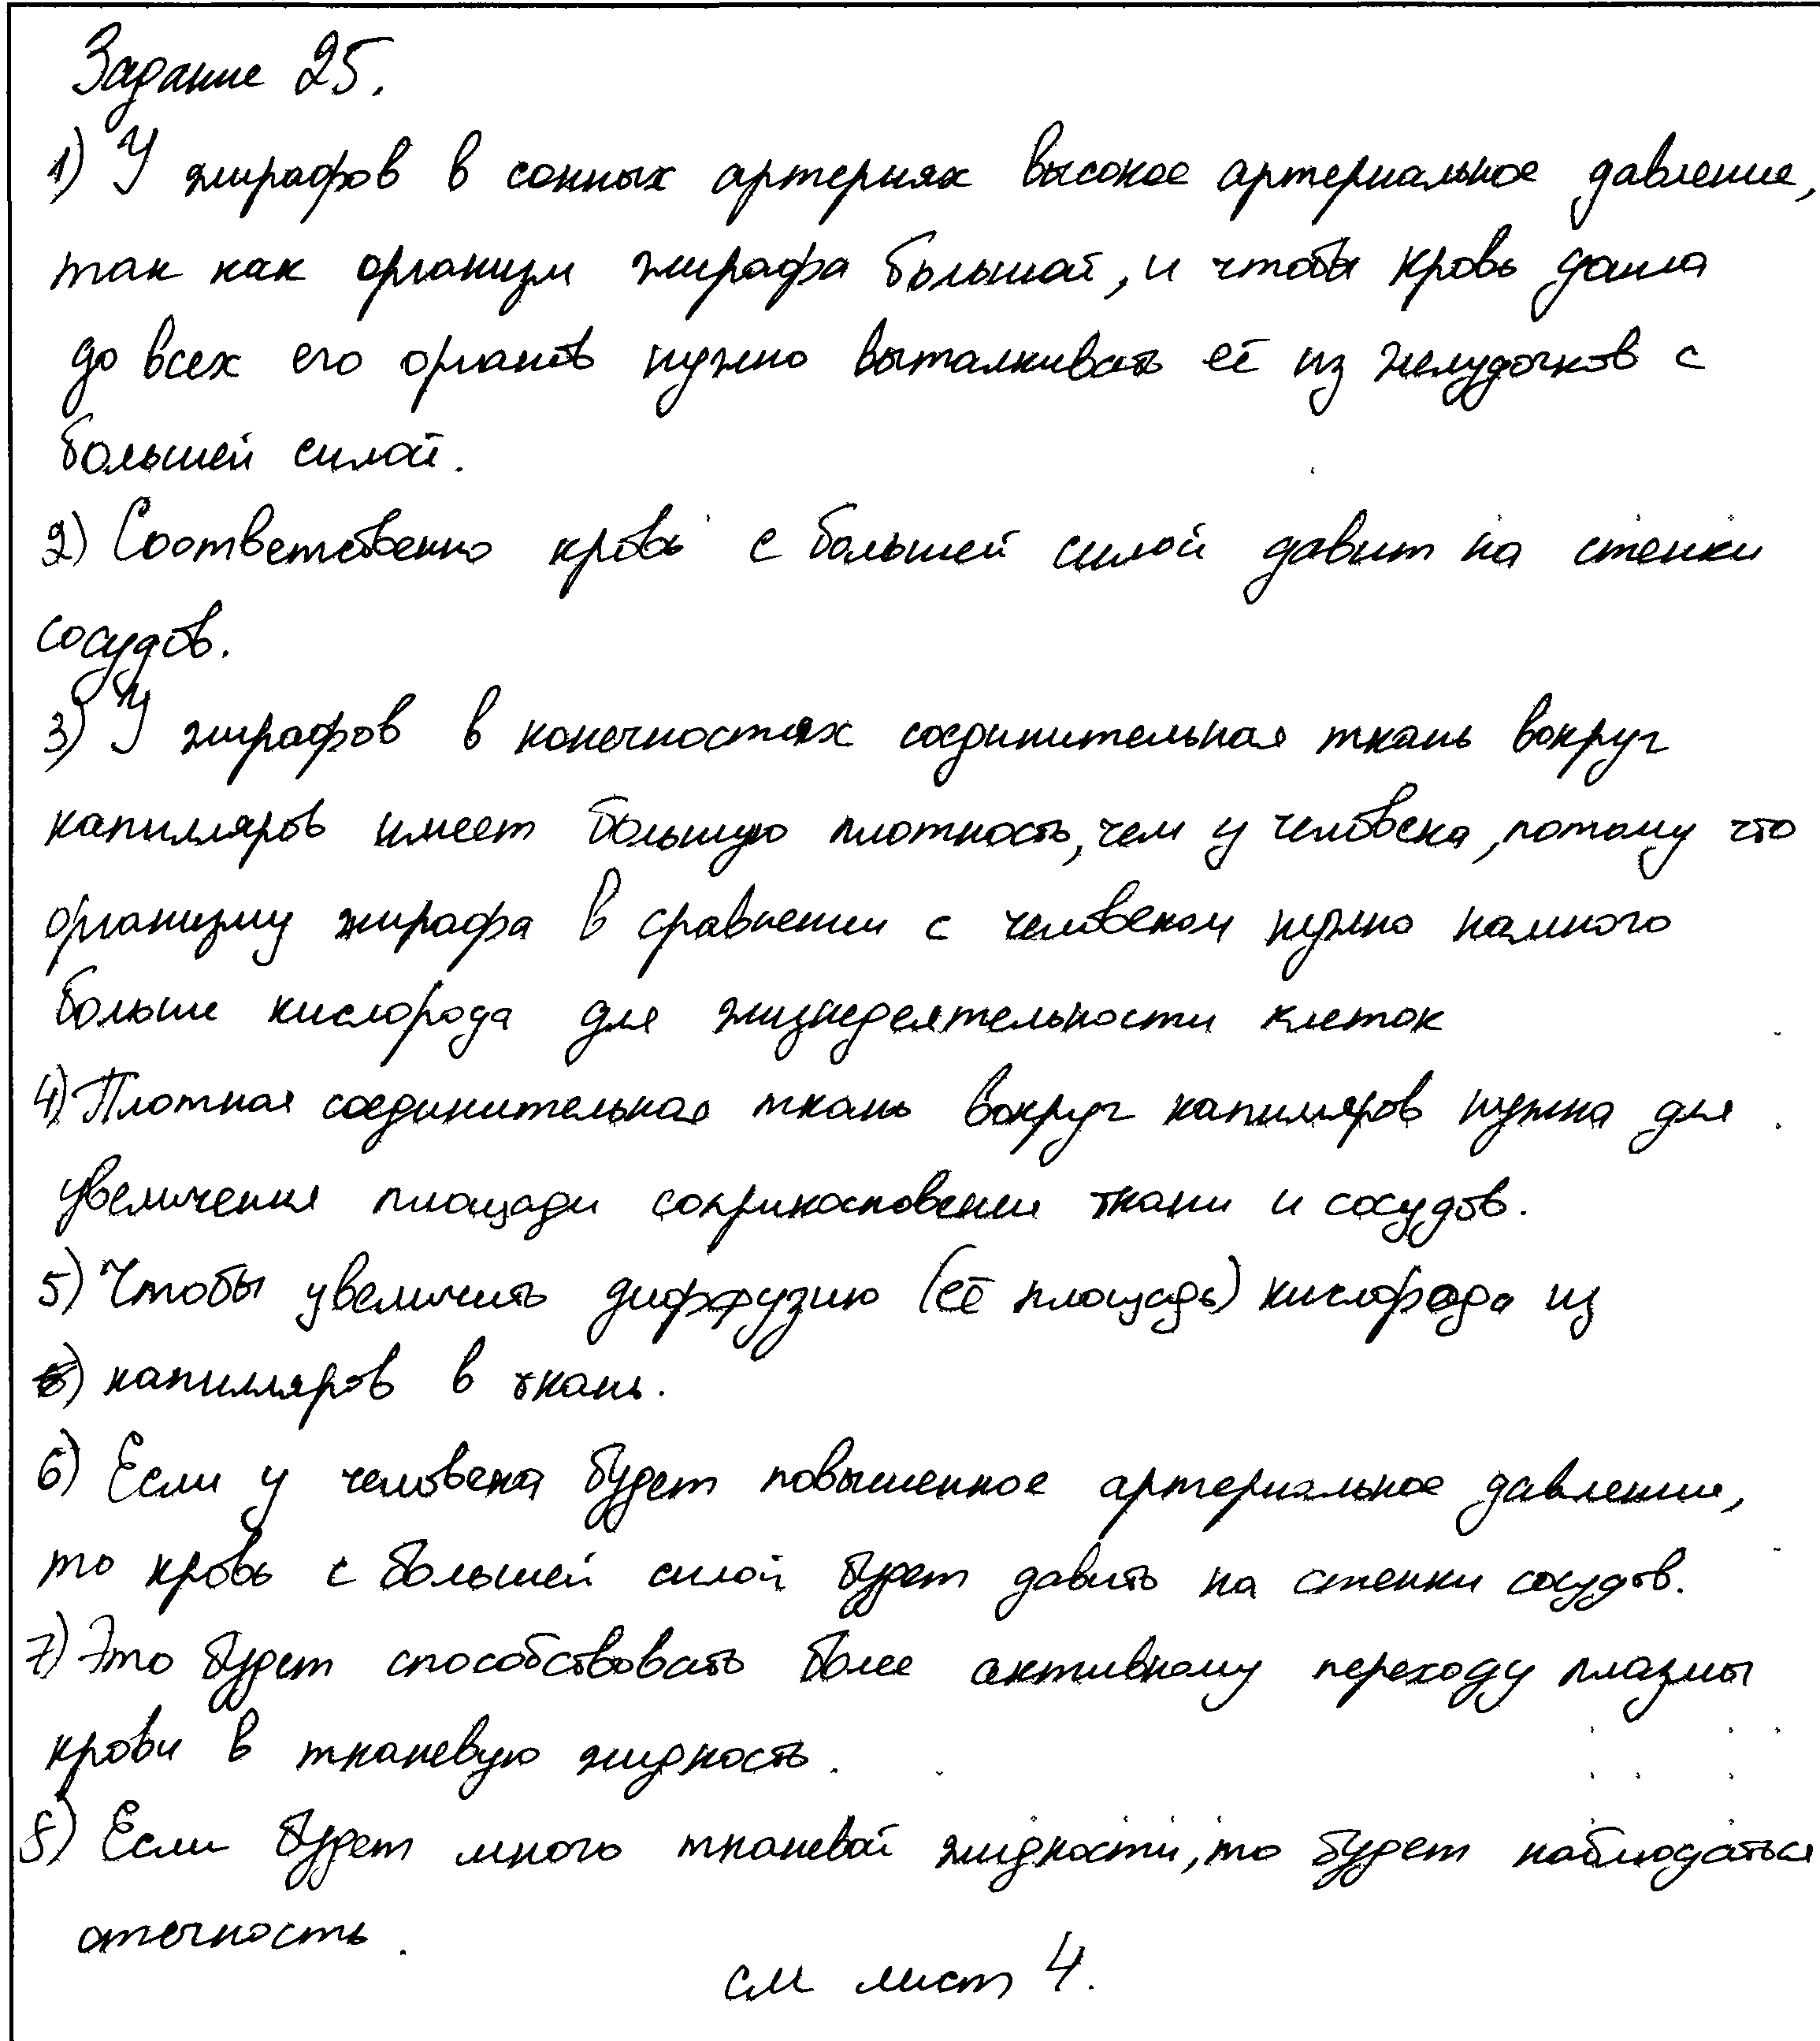 Задание 25.
1) У жирафов в сонных артериях высокое артериальное давление,
так как организм жирафа большой, и чтобы кровь дошла
до всех его органов нужно выталкивать её из желудочков с
большей силой.
2) Соответственно кровь с большей силой давит на стенки
сосудов.
3) У жирафов в конечностях соединительная ткань вокруг
капилляров имеет большую плотность, чем у человека, потому что
организму жирафа в сравнении с человеком нужно намного
больше кислорода для жизнедеятельности клеток
4) Плотная соединительная ткань вокруг капилляров нужна для
увеличения площади соприкосновения ткани и сосудов.
5) Чтобы увеличить диффузию (её площадь) кислорода из
капилляров в ткань.
6) Если у человека будет повышенное артериальное давление,
то кровь с большей силой будет давить на стенки сосудов.
7) Это будет способствовать более активному переходу плазмы
крови в тканевую жидкость.
8) Если будет много тканевой жидкости, то будет наблюдаться
отечность.
см лист 4.